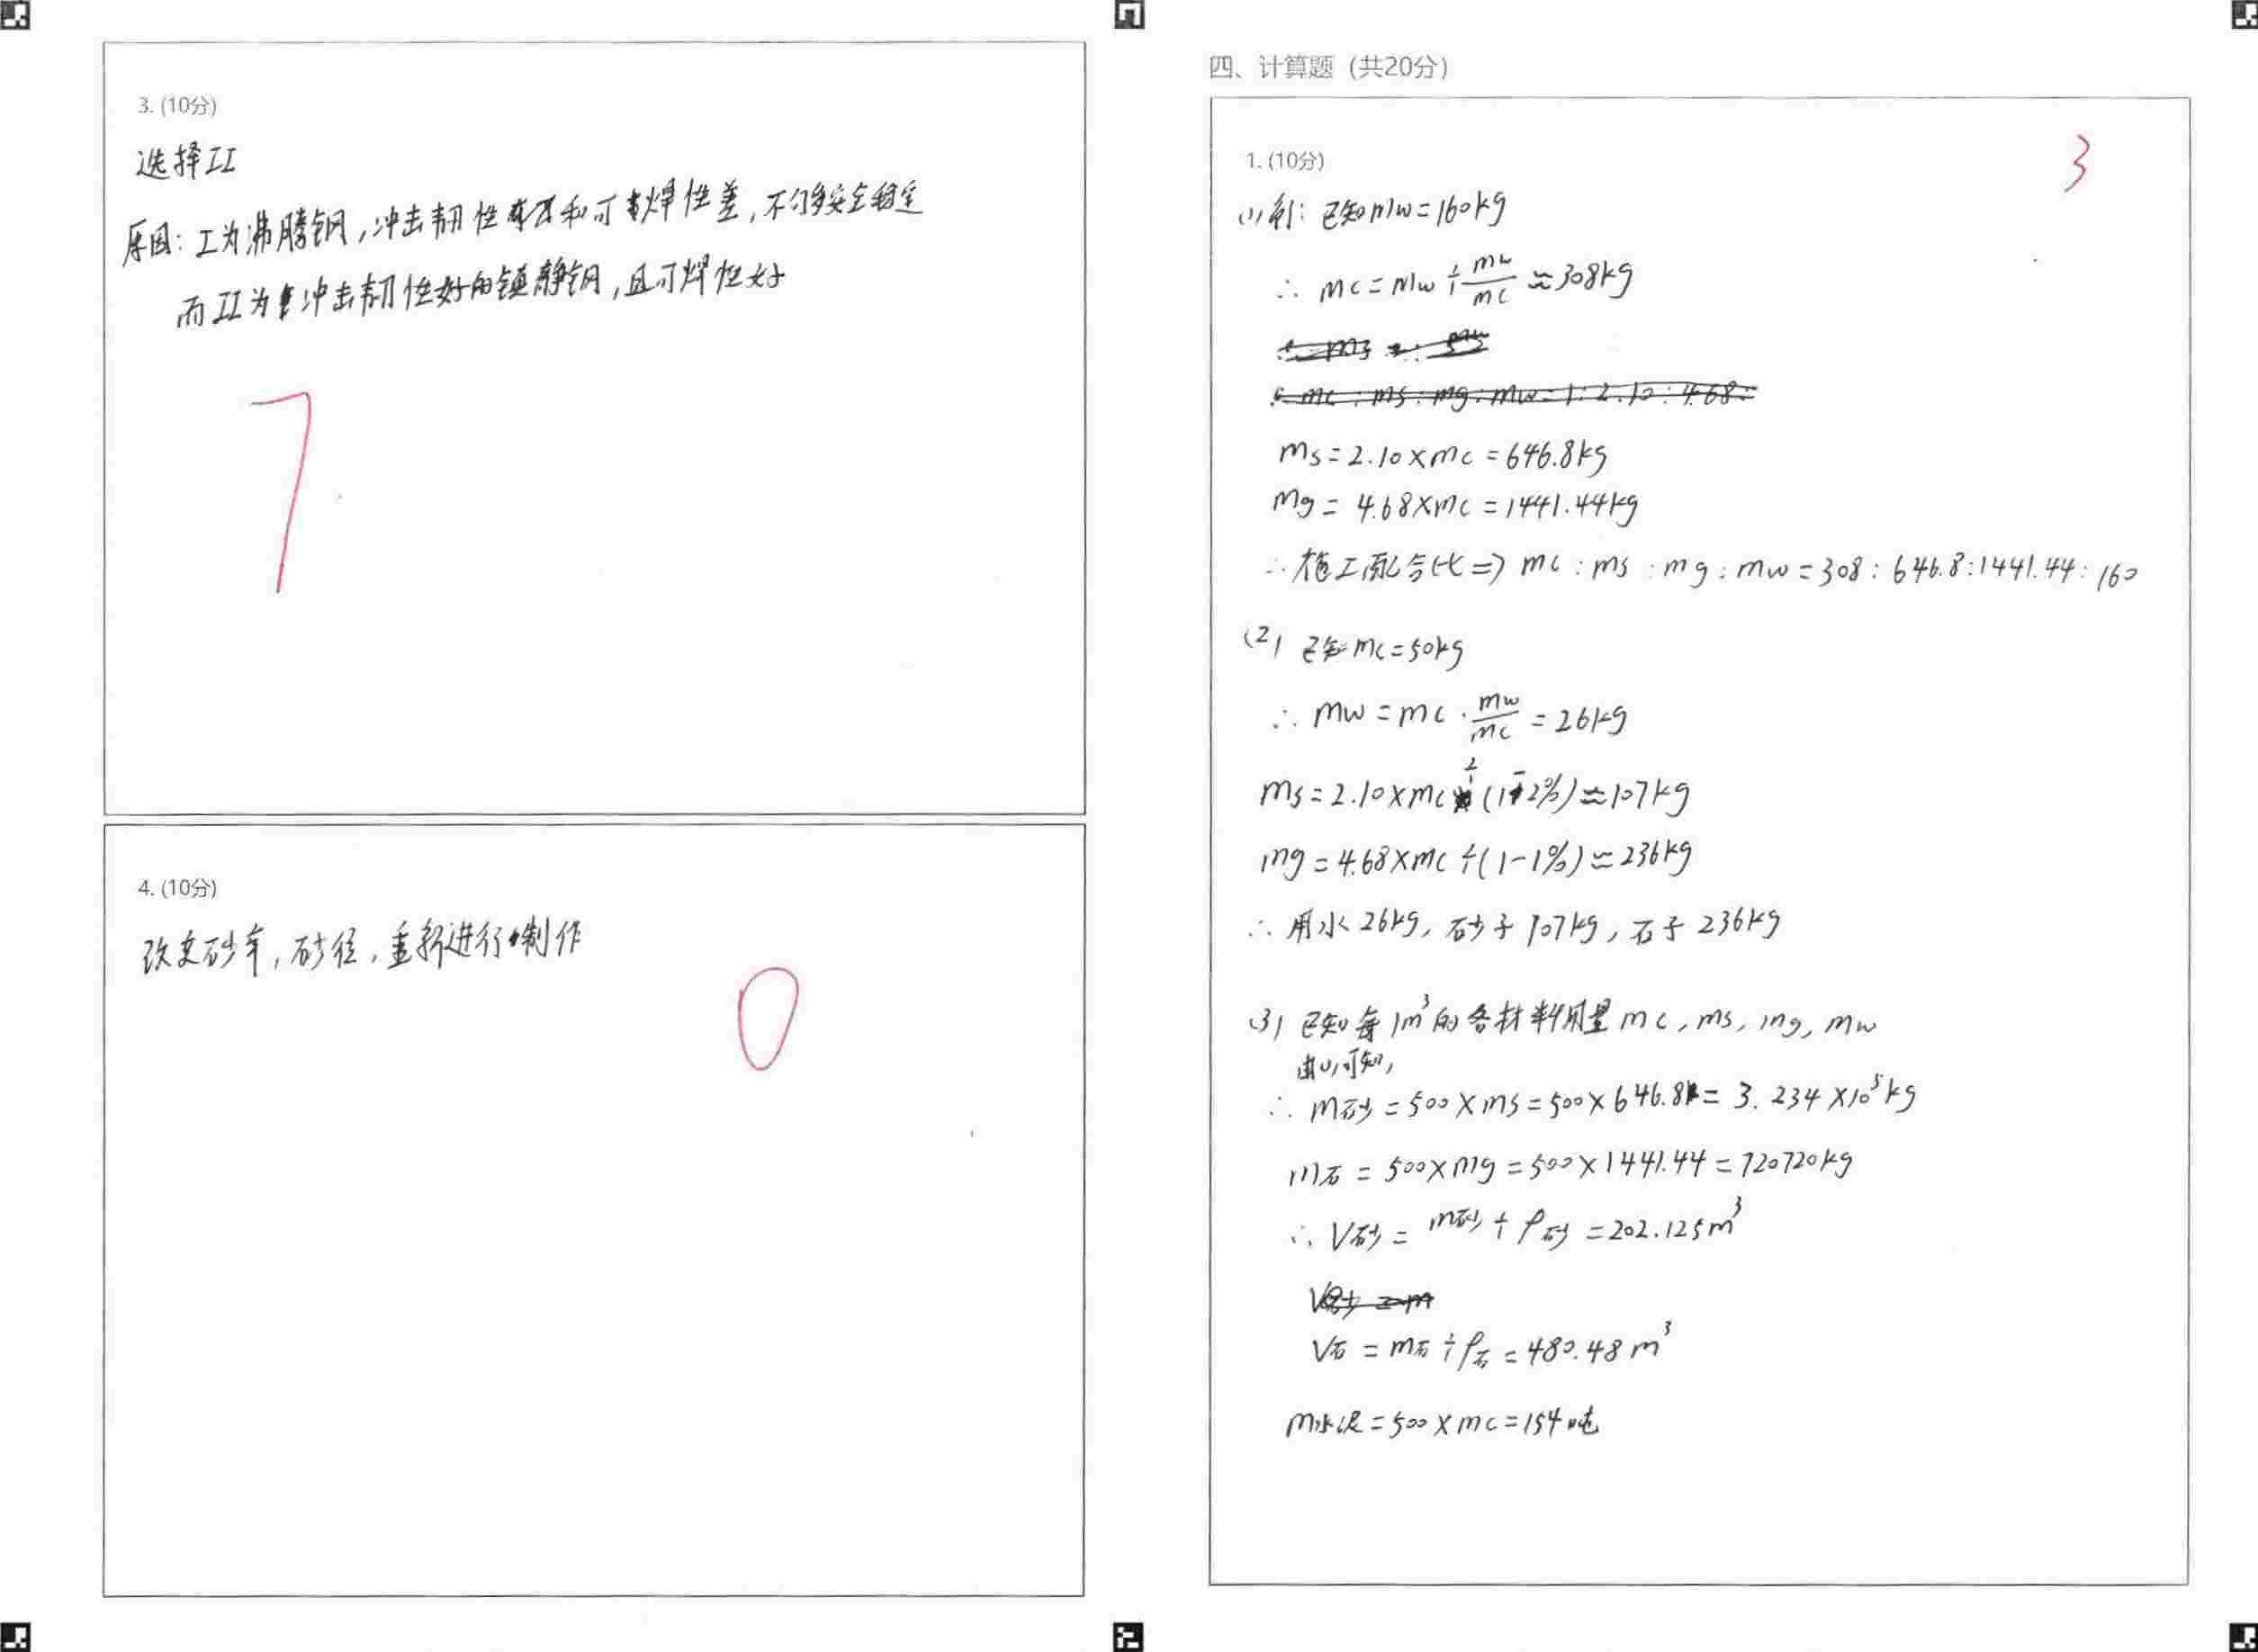 3. (10分)
选择II
原因: I为沸腾钢,冲击韧性和可焊性差,不够安全稳定
而II为冲击韧性好的镇静钢,且可焊性好
7
4. (10分)
改变砂率,砂径,重新进行制作
0
四、计算题 (共20分)
3
1. (10分)
(1) 解: 已知mw=160kg
∴ mc=mw÷mw/mc≈308kg
ms=2.10×mc=646.8kg
mg=4.68×mc=1441.44kg
∴施工配合比⇒ mc:ms:mg:mw=308:646.8:1441.44:160
(2) 已知mc=50kg
∴ mw=mc·mw/mc=26kg
ms=2.10×mc÷(1-2%)≈107kg
mg=4.68×mc÷(1-1%)≈236kg
∴ 用水26kg, 砂子107kg, 石子236kg
(3) 已知每1m³的各材料用量mc, ms, mg, mw
由(1)可知,
∴ m砂=500×ms=500×646.8=3.234×10⁵kg
m石=500×mg=500×1441.44=720720kg
∴ V砂=m砂÷ρ砂=202.125m³
V石=m石÷ρ石=480.48m³
m水泥=500×mc=154吨